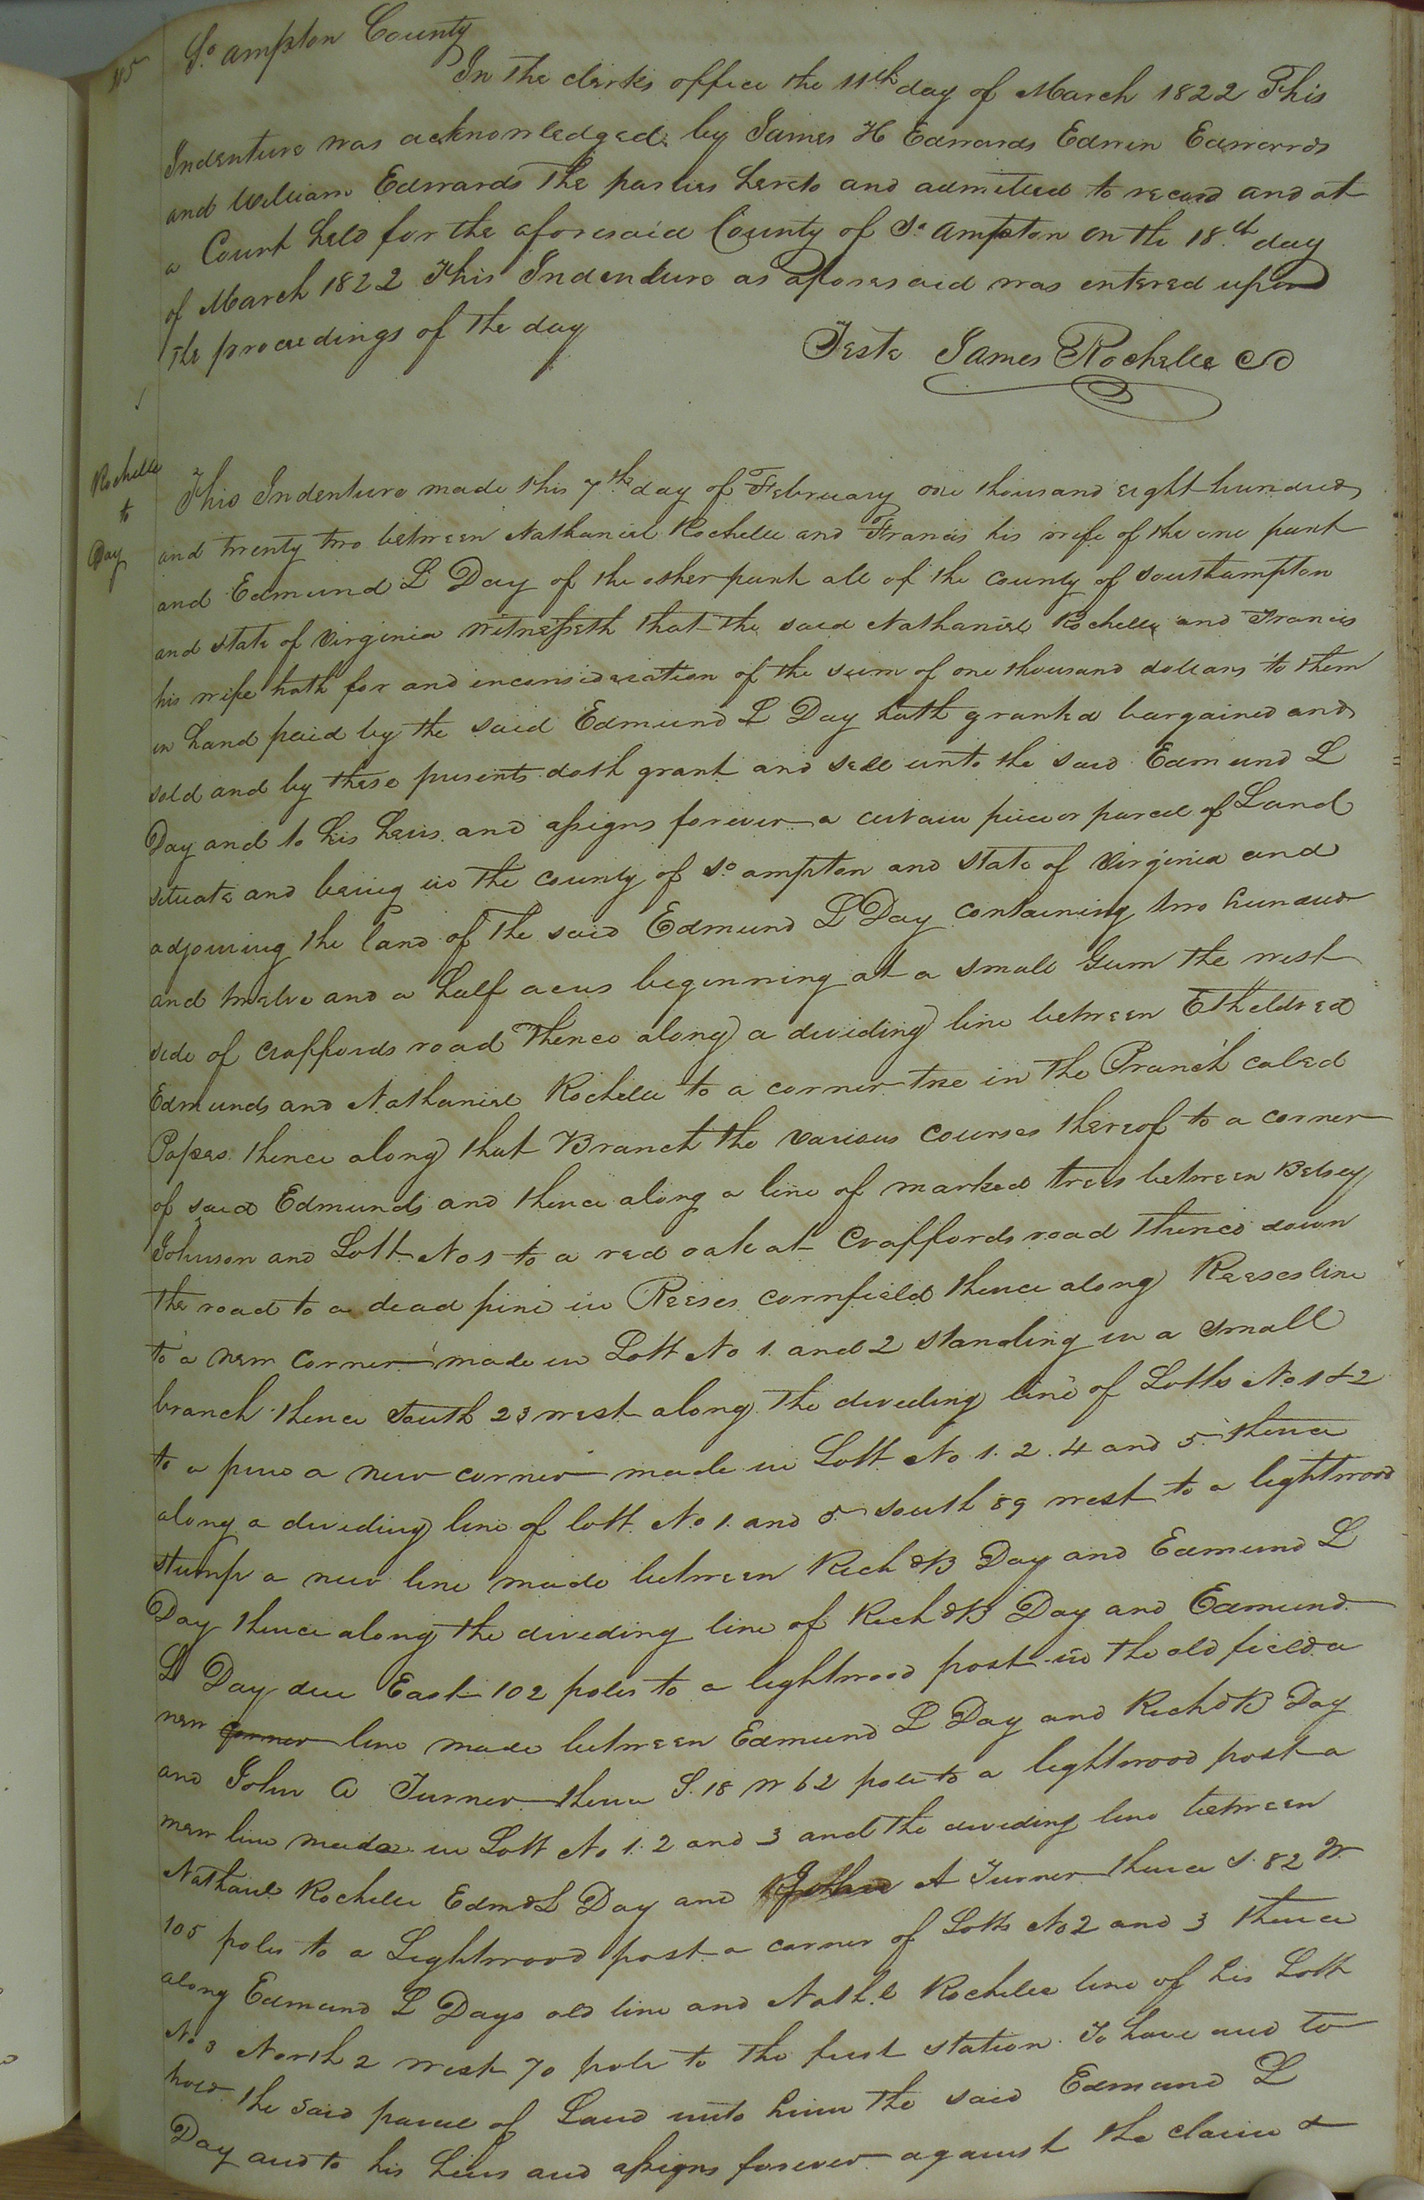 115
So. ampton County
In the clerks office the 11th day of March 1822 This
Indenture was acknowledged by James H Edwards Edwin Edwards
and William Edwards The parties hereto and admitted to record and at
a Court held for the aforesaid County of So. ampton on the 18.th day
of March 1822 This Indenture as aforesaid was entered upon
the proceedings of the day
Teste James Rochelle CS
Rochelle
to
Day
This Indenture made this 7th day of February one thousand eight hundred
and twenty two between Nathaniel Rochelle and Francis his wife of the one part
and Edmund L Day of the other part all of the county of Southampton
and state of Virginia Witnesseth that the said Nathaniel Rochelle and Francis
his wife hath for and inconsideration of the sum of one thousand dollars to them
in hand paid by the said Edmund L Day hath granted bargained and
sold and by these presents doth grant and sell unto the said Edmund L
Day and to his heirs and assigns forever a certain piece or parcel of Land
situate and being in the county of So ampton and state of Virginia and
adjoining the land of the said Edmund L Day containing two hundred
and twelve and a half acres beginning at a small Gum the west
side of Craffords road Thence along a dividing line between Etheldred
Edmunds and Nathaniel Rochelle to a corner tree in the Branch caled
Popes thence along that Branch the various courses thereof to a corner
of said Edmunds and thence along a line of marked trees between Betsey
Johnson and Lott No 1 to a red oak at Craffords road thence down
the road to a dead pine in Reeses cornfield thence along Reeses line
to a new corner made in Lott No 1. and 2 standing in a small
branch thence South 23 west along the dividing line of Lotts No 1 & 2
to a pine a new corner made in Lott No 1. 2. 4 and 5 thence
along a dividing line of lott No 1. and 5 south 89 west to a lightwood
stump a new line made between Richd B Day and Edmund L
Day thence along the dividing line of Richd B Day and Edmund
L Day due East 102 poles to a lightwood post in the old field a
new corner line made between Edmund L Day and Richd B Day
and John A Turner thence S. 18 W 62 pole to a lightwood post a
new line made in Lott No 1. 2 and 3 and the dividing line between
Nathaiel Rochelle Edmd L Day and John A Turner thence S. 82 W
105 poles to a Lightwood post a corner of Lotts No 2 and 3 thence
along Edmund L Days old line and Nath.l Rochelle line of his Lott
No 3 North 2 west 70 pole to the first station. To have and to
hold the said parcel of Land unto him the said Edmund L
Day and to his heirs and assigns forever against the claim &